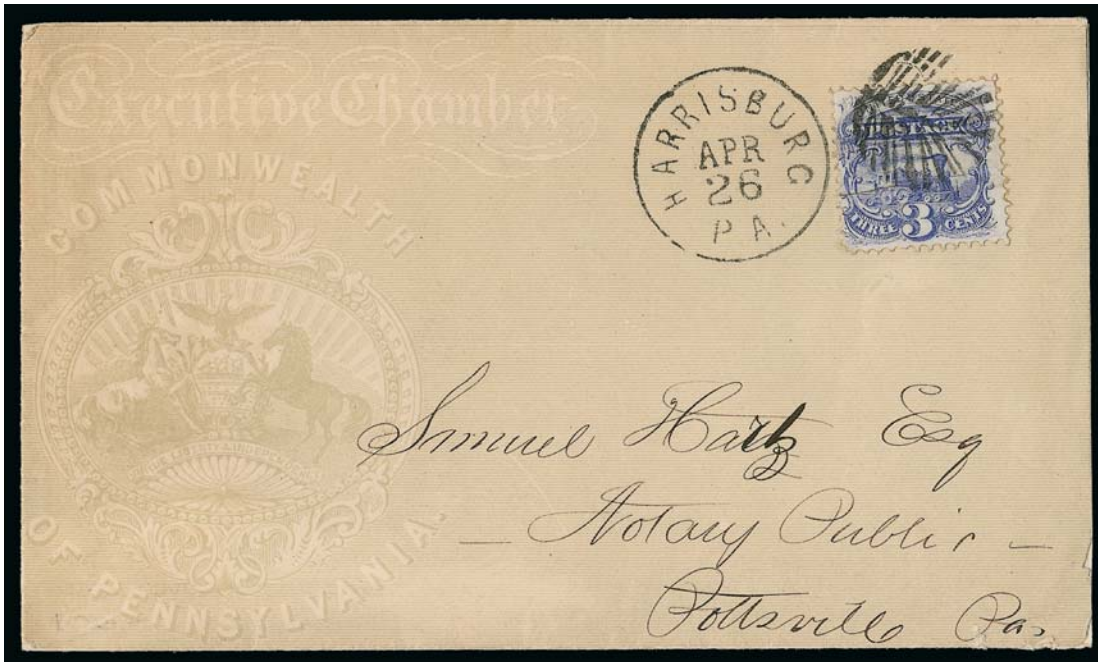 Executive Chamber
COMMONWEALTH
OF PENNSYLVANIA.
HARRISBURG
APR
26
PA.
POSTAGE
THREE 3 CENTS
Samuel Hartz Esq
Notary Public
Pottsville Pa.